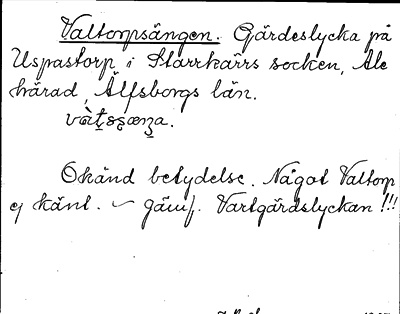 Valtorpsängen. Gärdeslycka på
Uspastorp i Starrkärrs socken, Ale
härad, Älfsborgs län.
Okänd betydelse. Något Valtorp
ej känt. – jämf. Vartgärdslyckan!!!